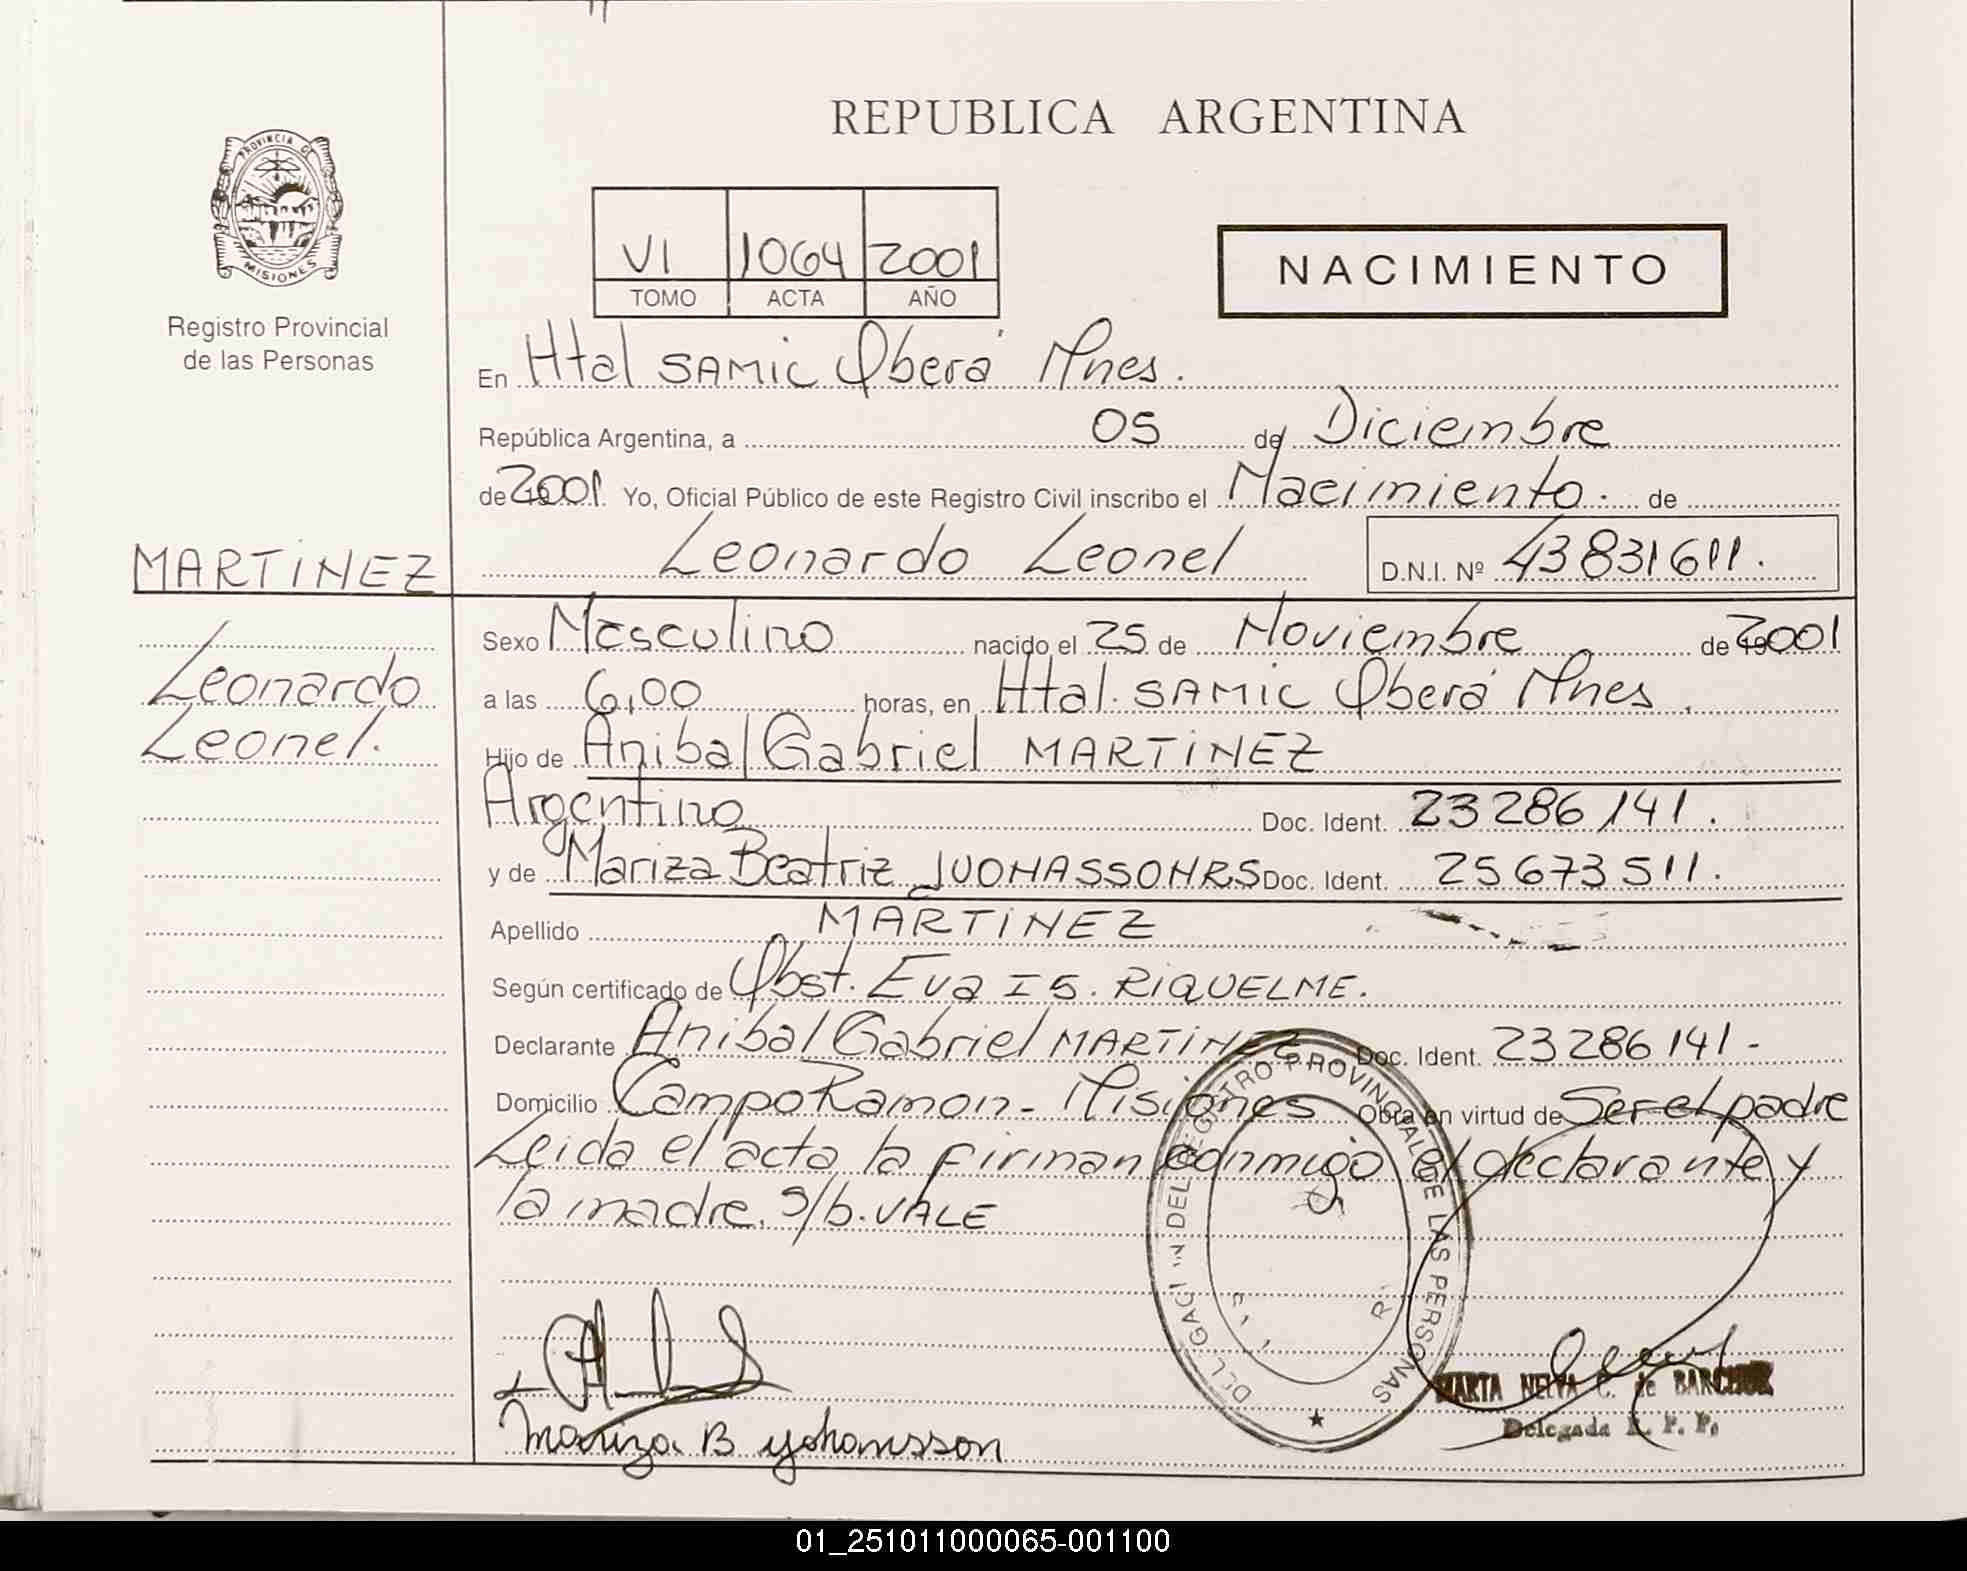 REPUBLICA ARGENTINA
PROVINCIA DE
MISIONES
Registro Provincial
de las Personas
VI 1064 2001
TOMO ACTA AÑO
NACIMIENTO
En Htal SAMIC Oberá Mnes.
República Argentina, a 05 de Diciembre
de 2001. Yo, Oficial Público de este Registro Civil inscribo el Nacimiento. de
MARTINEZ
Leonardo Leonel D.N.I. Nº 43831611.
Leonardo
Leonel.
Sexo Masculino nacido el 25 de Noviembre de 2001
a las 6,00 horas, en Htal. SAMIC Oberá Mnes.
Hijo de Anibal Gabriel MARTINEZ
Argentino Doc. Ident. 23286141.
y de Mariza Beatriz JUOHASSOHRS Doc. Ident. 25673511.
Apellido MARTINEZ
Según certificado de Obst. Eva IS. RIQUELME.
Declarante Anibal Gabriel MARTINEZ Doc. Ident. 23286141-
Domicilio Campo Ramon - Misiones Obra en virtud de Ser el padre
Leida el acta la firman conmigo el declarante y
la madre. S/b. VALE
REGISTRO PROVINCIAL DE LAS PERSONAS
Mariza B yohansson
MARTA NELVA C. de
Delegada R. P. P.
01_251011000065-001100